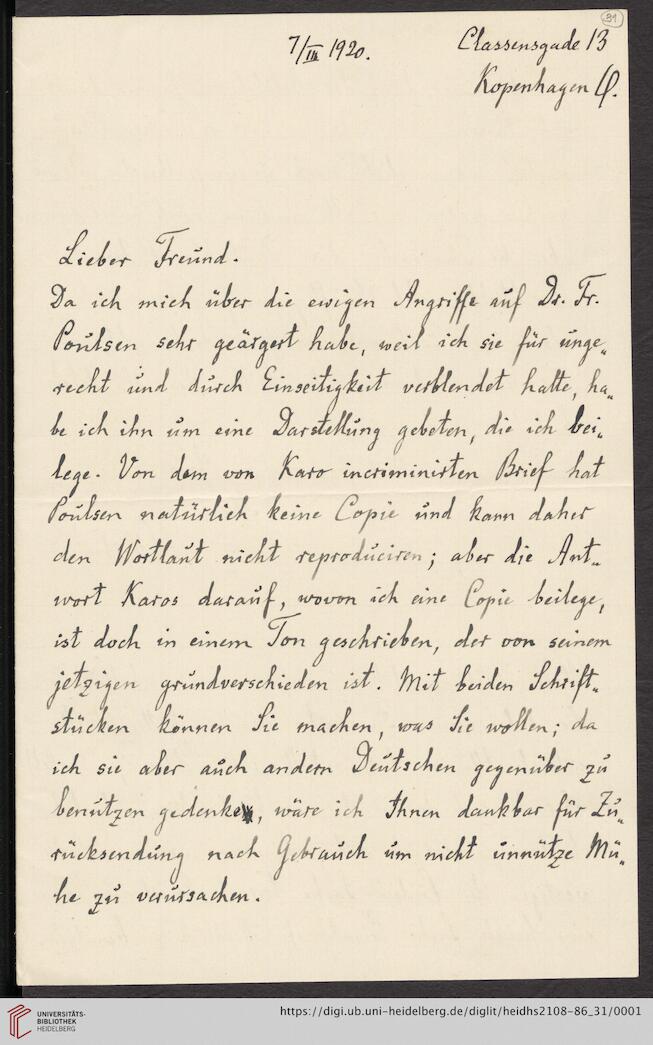 91
7/III 1920.
Classensgade 13
Kopenhagen Ø.
Lieber Freund.
Da ich mich über die ewigen Angriffe auf Dr. Fr.
Poulsen sehr geärgert habe, weil ich sie für unge„
recht und durch Einseitigkeit verblendet halte, ha„
be ich ihn um eine Darstellung gebeten, die ich bei„
lege. Von dem von Karo incriminirten Brief hat
Poulsen natürlich keine Copie und kann daher
den Wortlaut nicht reproduciren; aber die Ant„
wort Karos darauf, wovon ich eine Copie beilege,
ist doch in einem Ton geschrieben, der von seinem
jetzigen grundverschieden ist. Mit beiden Schrift„
stücken können Sie machen, was Sie wollen; da
ich sie aber auch andern Deutschen gegenüber zu
benutzen gedenke, wäre ich Ihnen dankbar für Zu„
rücksendung nach Gebrauch um nicht unnütze Mü„
he zu verursachen.
UNIVERSITÄTS-
BIBLIOTHEK
HEIDELBERG
https://digi.ub.uni-heidelberg.de/diglit/heidhs2108-86_31/0001